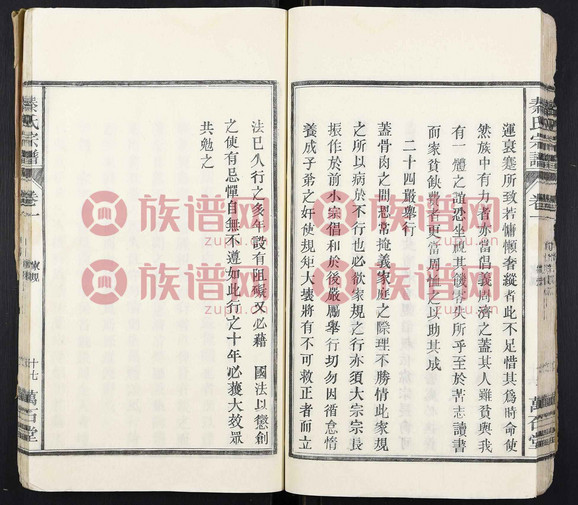 運衰蹇所致若慵惰奢縱者此不足惜其爲時命使
然族中有力者亦當倡義周濟之蓋其人雖貧與我
有一體之誼恐坐視其饑寒失所乎至於苦志讀書
而家貧缺資者更當周恤之以助其成
二十四嚴舉行
蓋骨肉之間恩常掩義家庭之際理不勝情此家規
之所以病於不行也必欲家規之行亦須大宗宗長
振作於前小宗倡和於後嚴厲舉行切勿因循怠惰
養成子弟之奸使規矩大壞將有不可救正者而立
法已久行之多年設有阻礙又必藉 國法以懲創
之使有忌憚自無不遵如此行之十年必獲大效眾
共勉之
秦氏宗譜
卷一
家規
十七
萬石堂
秦氏宗譜
卷一
萬石堂
族谱网
zupu.cn
族谱网
zupu.cn
族谱网
zupu.cn
族谱网
zupu.cn